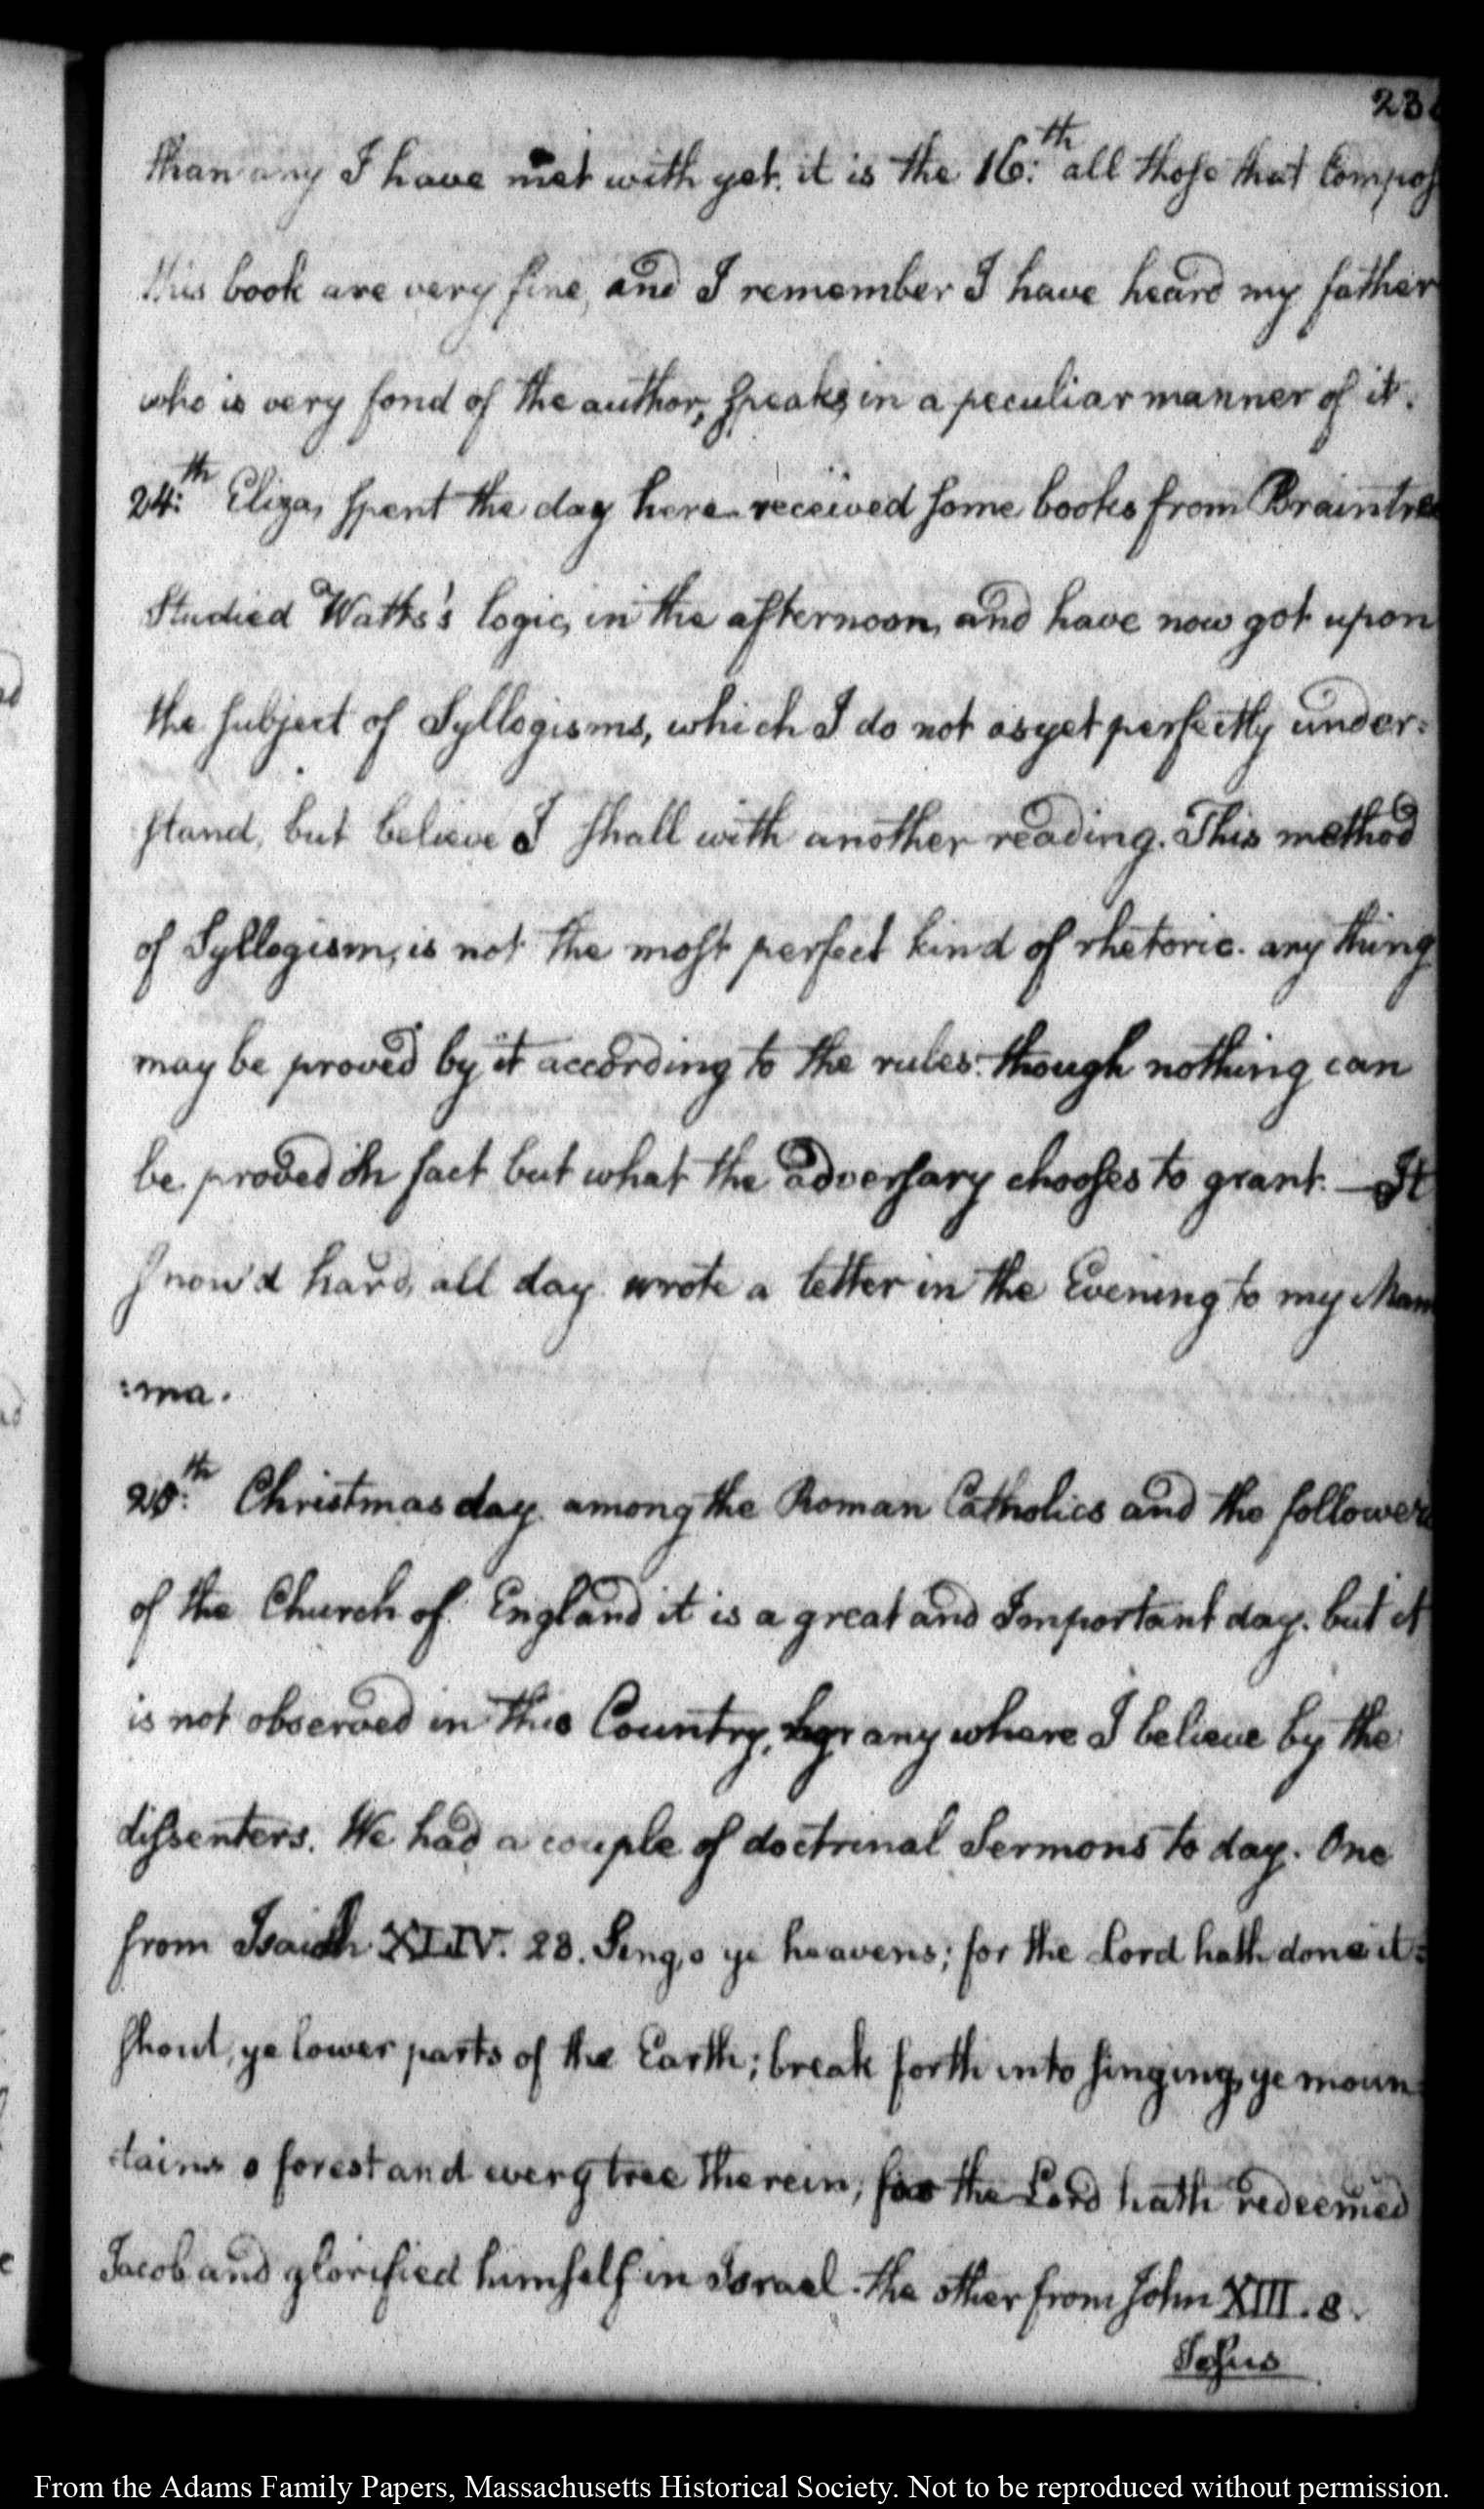 23
than any I have met with yet. it is the 16:th all those that Compos
this book are very fine, and I remember I have heard my father
who is very fond of the author, speak, in a peculiar manner of it.
24:th Eliza, spent the day here received some books from Braintree
Studied Watts's logic, in the afternoon, and have now got upon
the subject of Syllogisms, which I do not as yet perfectly under:
stand, but believe I shall with another reading. This method
of Syllogism, is not the most perfect kind of rhetoric. any thing
may be proved by it according to the rules: though nothing can
be proved in fact but what the adversary chooses to grant. — It
snow'd hard, all day. wrote a letter in the Evening to my Mam
:ma.
25:th Christmas day. among the Roman Catholics and the followers
of the Church of England it is a great and Important day. but it
is not observed in this Country, nor any where I believe by the
dissenters. We had a couple of doctrinal Sermons to day. One
from Isaiah XLIV. 23. Sing, o ye heavens; for the Lord hath done it:
shout, ye lower parts of the Earth; break forth into singing, ye moun
tains o forest and every tree therein; for the Lord hath redeemed
Jacob and glorified himself in Israel. the other from John XIII. 8.
Jesus
From the Adams Family Papers, Massachusetts Historical Society. Not to be reproduced without permission.